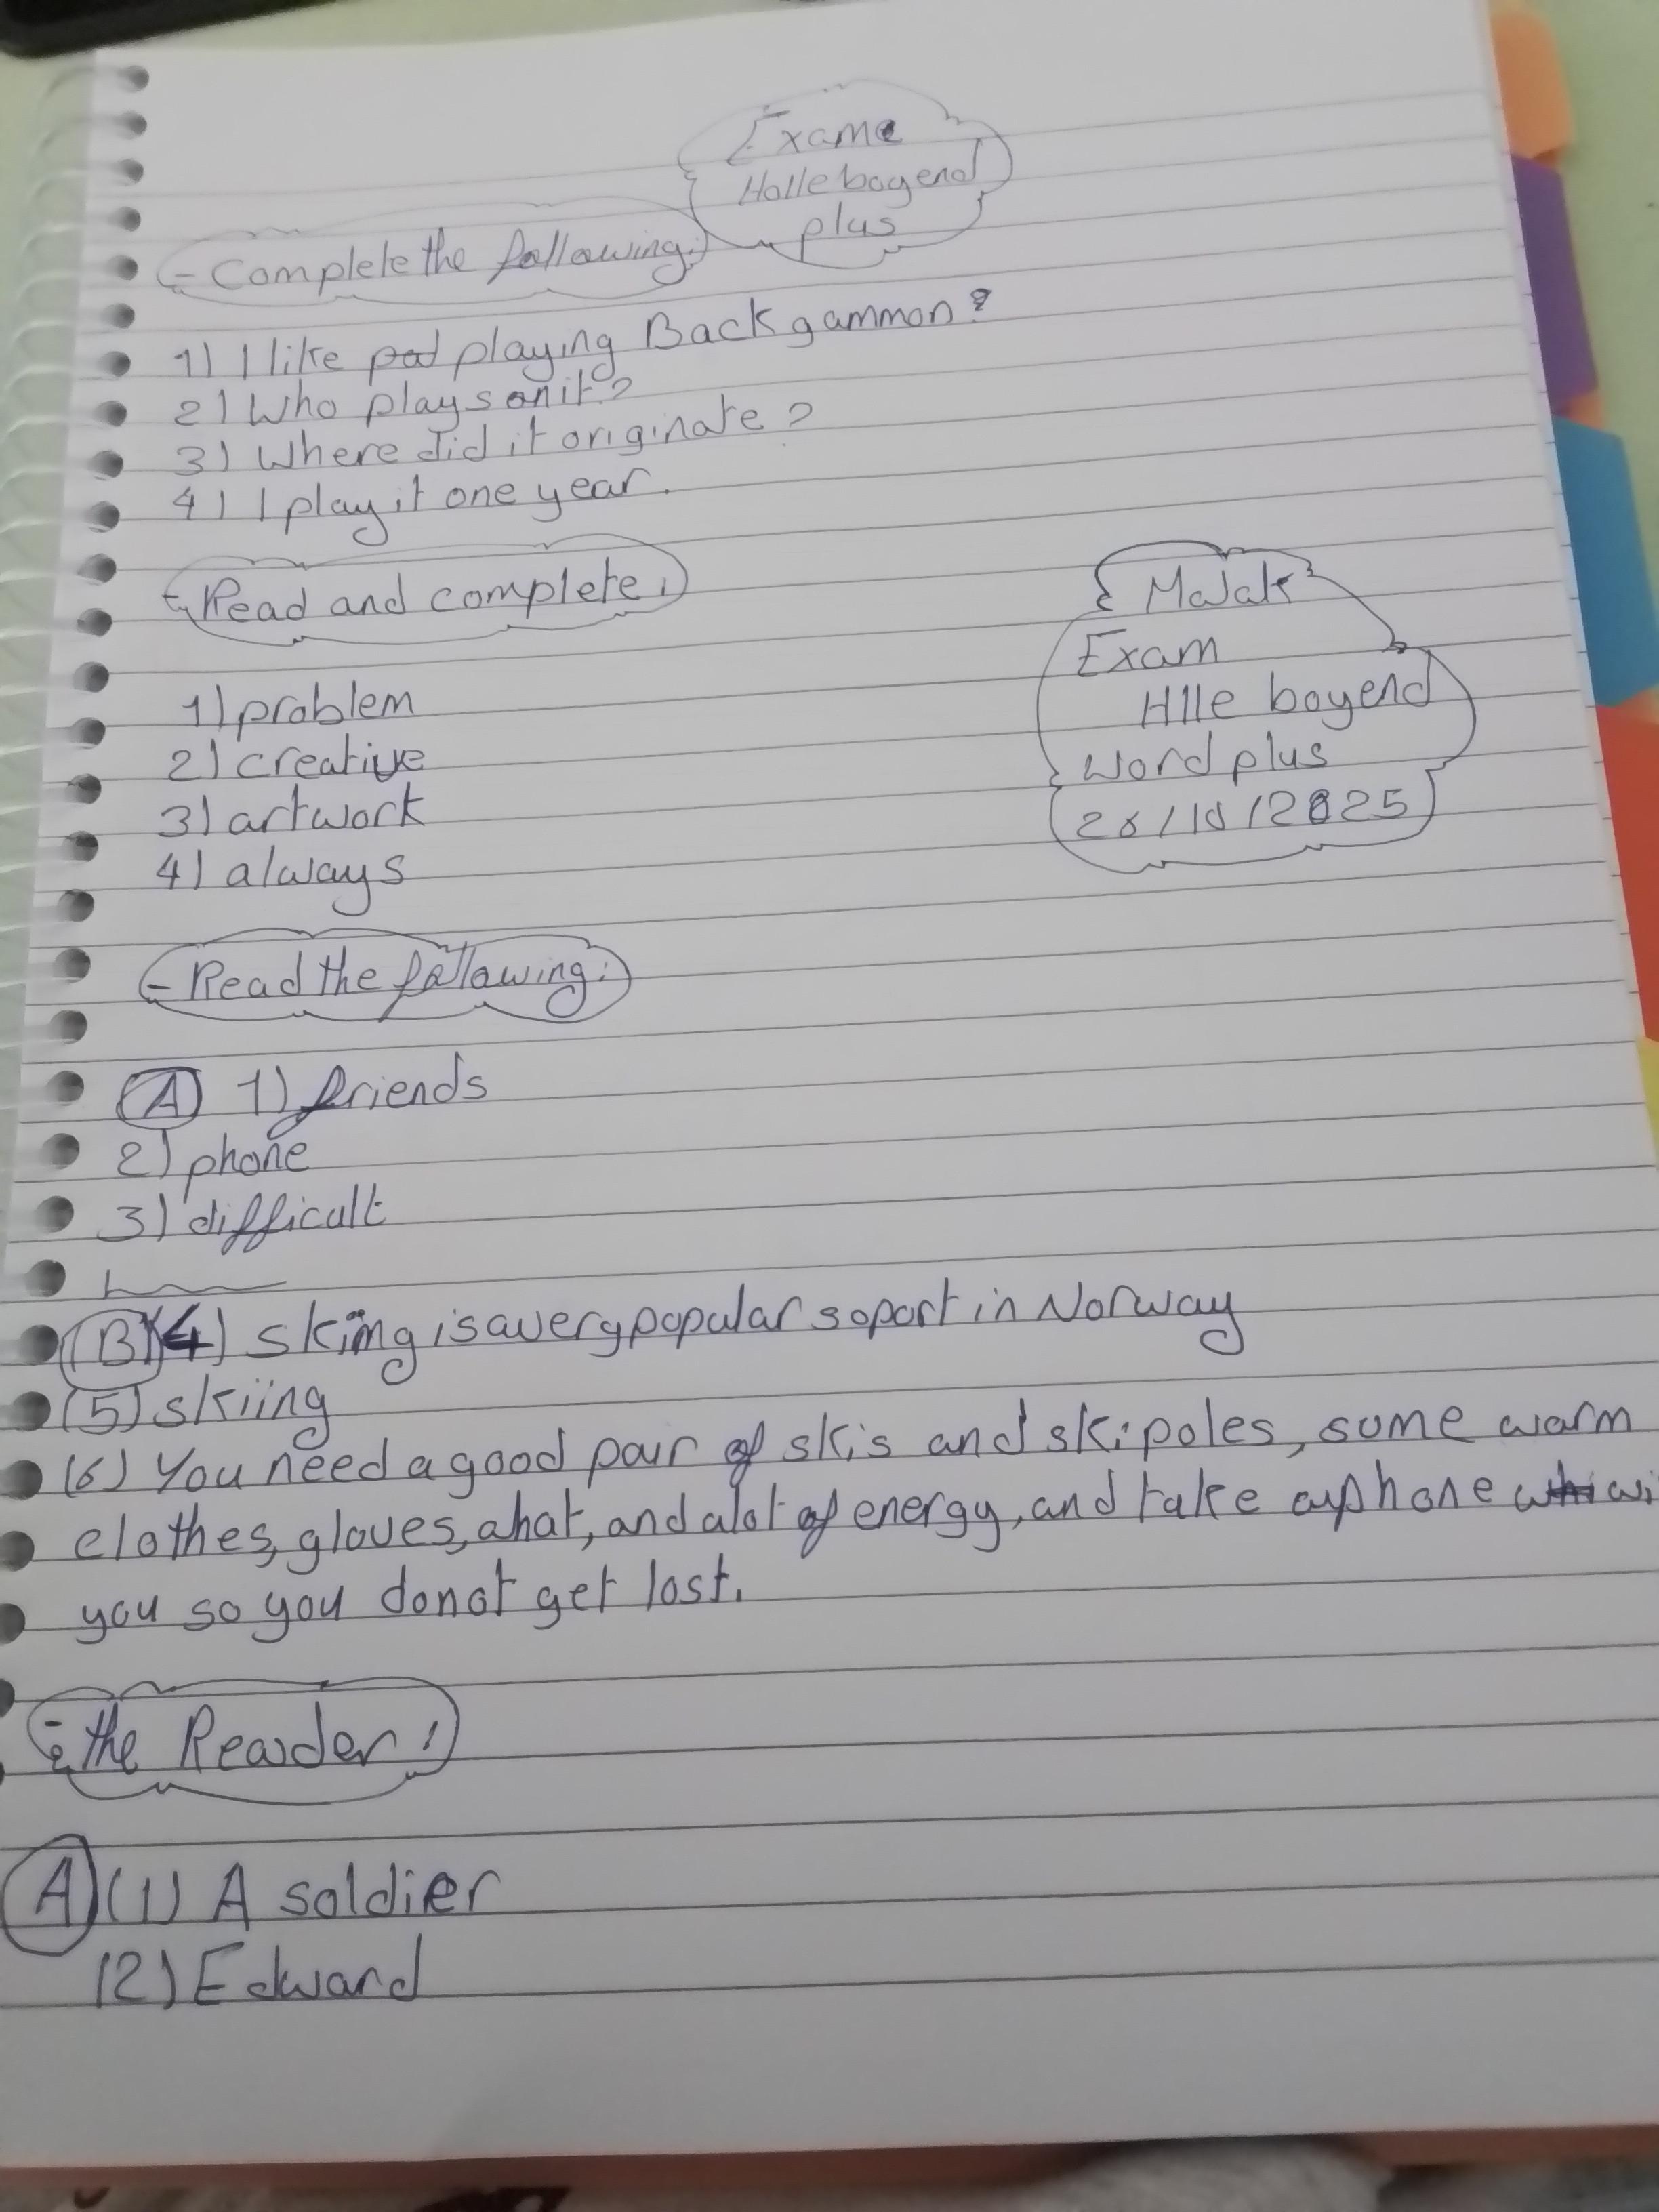 Exame
Halle bayend
plus
- Complete the following:
1) I like pat playing Back gammon?
2) Who plays on it?
3) Where did it originate?
4) I play it one year.
- Read and complete:
Malak
Exam
Hlle bayend
Word plus
28/10/2025
1) problem
2) creative
3) artwork
4) always
- Read the fallowing:
A 1) friends
2) phone
3) difficult
B (4) skiing is a very popular soport in Norway
(5) skiing
(6) You need a good pair of skis and ski poles, some warm
clothes, gloves, a hat, and a lot of energy, and take a phone wi
you so you donot get lost.
- the Reader:
A (1) A soldier
(2) Edward